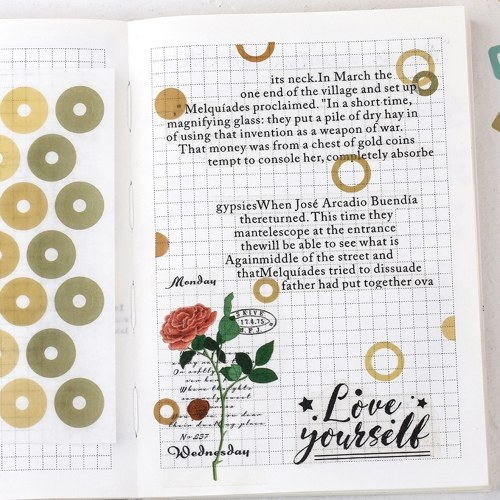 its neck.In March the
one end of the village and set up
Melquíades proclaimed. "In a short time,
magnifying glass: they put a pile of dry hay in
of using that invention as a weapon of war.
That money was from a chest of gold coins
tempt to console her, completely absorbe
gypsiesWhen José Arcadio Buendía
thereturned. This time they
mantelescope at the entrance
thewill be able to see what is
Againmiddle of the street and
thatMelquíades tried to dissuade
father had put together ova
Monday
17.4.75
Where thoughts
their dwelling place
No 237
Wednesday
Love
yourself